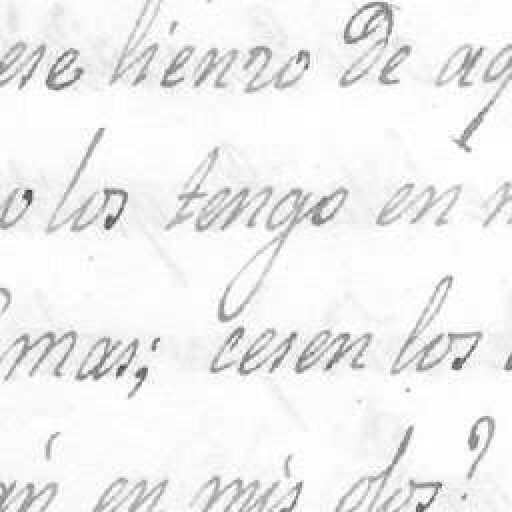 ese lienzo De aq
o los tengo en
mas; cesen los
án en mis ojos?